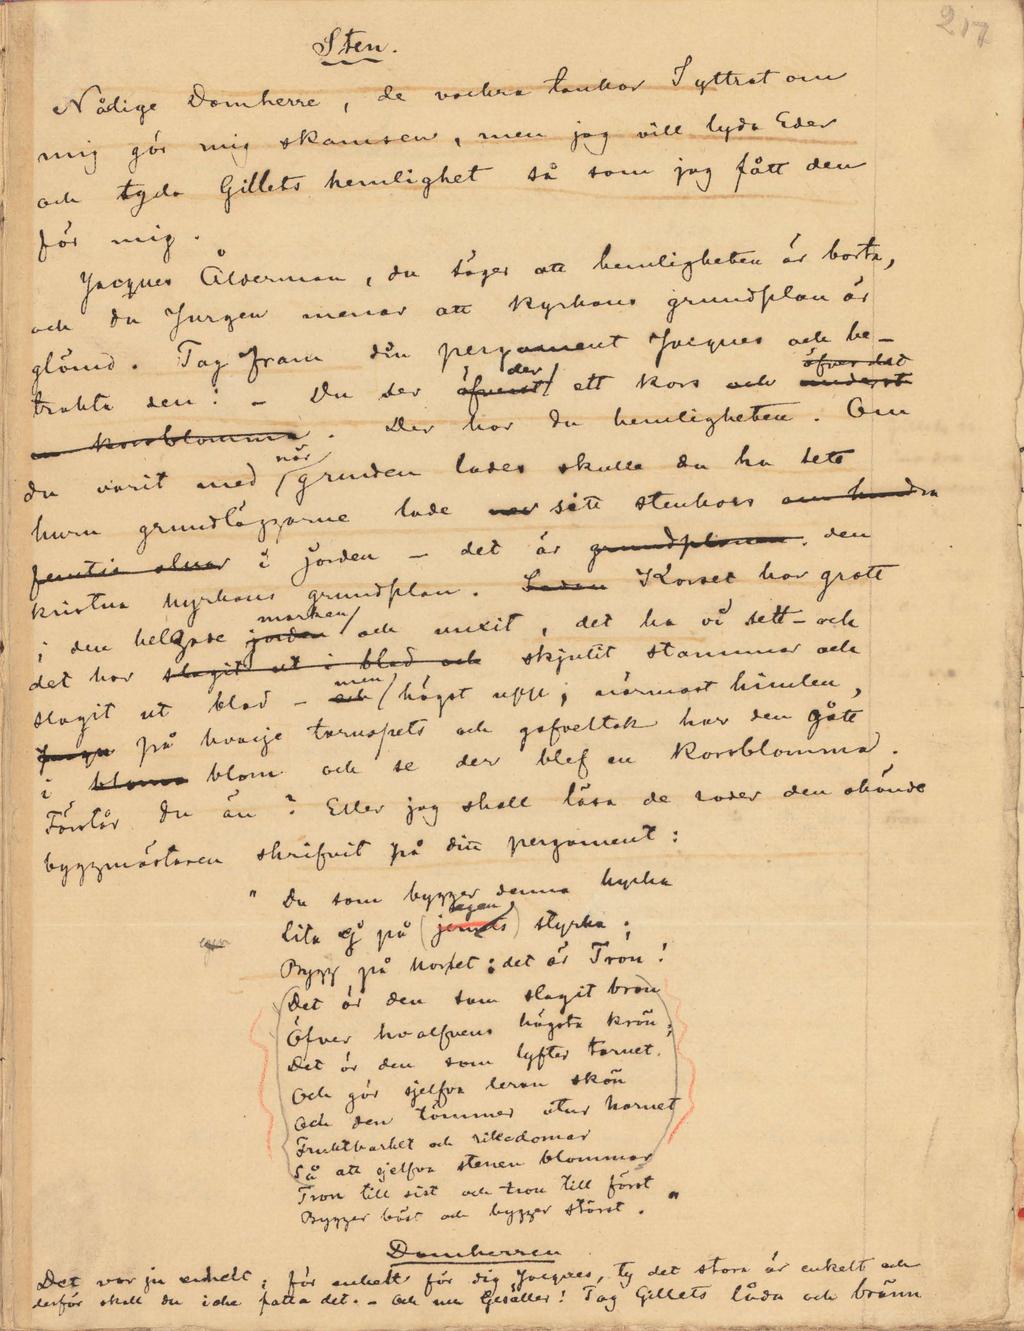 217
Sten.
Nådige Domherre, de vackra tankar I yttrat om
mig gör mig skamsen, men jag vill lyda Eder
och tyda Gillets hemlighet så som jag fått den
för mig.
Jacques Ålderman, du säger att hemligheten är borta,
och du Jurgen menar att kyrkans grundplan är
glömd. Tag fram din pergament Jacques och be-
trakta den! - Du ser öfverst der ett kors och underst öfver det
en korsblomma. Der har du hemligheten. Om
du varit med när grunden lades skulle du ha sett
huru grundläggarne lade sitt stenkors om hundra
femtio alnar i jorden - det är grundplanen, den
kristna kyrkans grundplan. Sedan Korset har grott
i den helgade jorden marken och vuxit, det ha vi sett - och
det har slagit ut i blad och skjutit stammar och
slagit ut blad - och men högst upp, närmast himlen,
på hvarje tornspets och gafveltak har den gått
i blom och se der blef en Korsblomma.
Förstår du än? Eller jag skall läsa de rader den okände
byggmästaren skrifvit på ditt pergament:
" Du som bygger denna kyrka
Lita ej på egen styrka;
Bygg på korset: det är Tron!
Det är den som slagit bron
Öfver hvalfvens högsta krön;
Det är den som lyfter tornet.
Och gör sjelfva leran skön
Och den tömmer utur hornet
Fruktbarhet och rikedomar
Så att sjelfva stenen blommar
Tron till sist och tron till först
Bygger bäst och bygger störst. "
Domherren
Det var ju enkelt, för enkelt för dig Jacques, ty det stora är enkelt och
derför skall du icke fatta det. - Och nu Gesäller! Tag Gillets låda och bränn